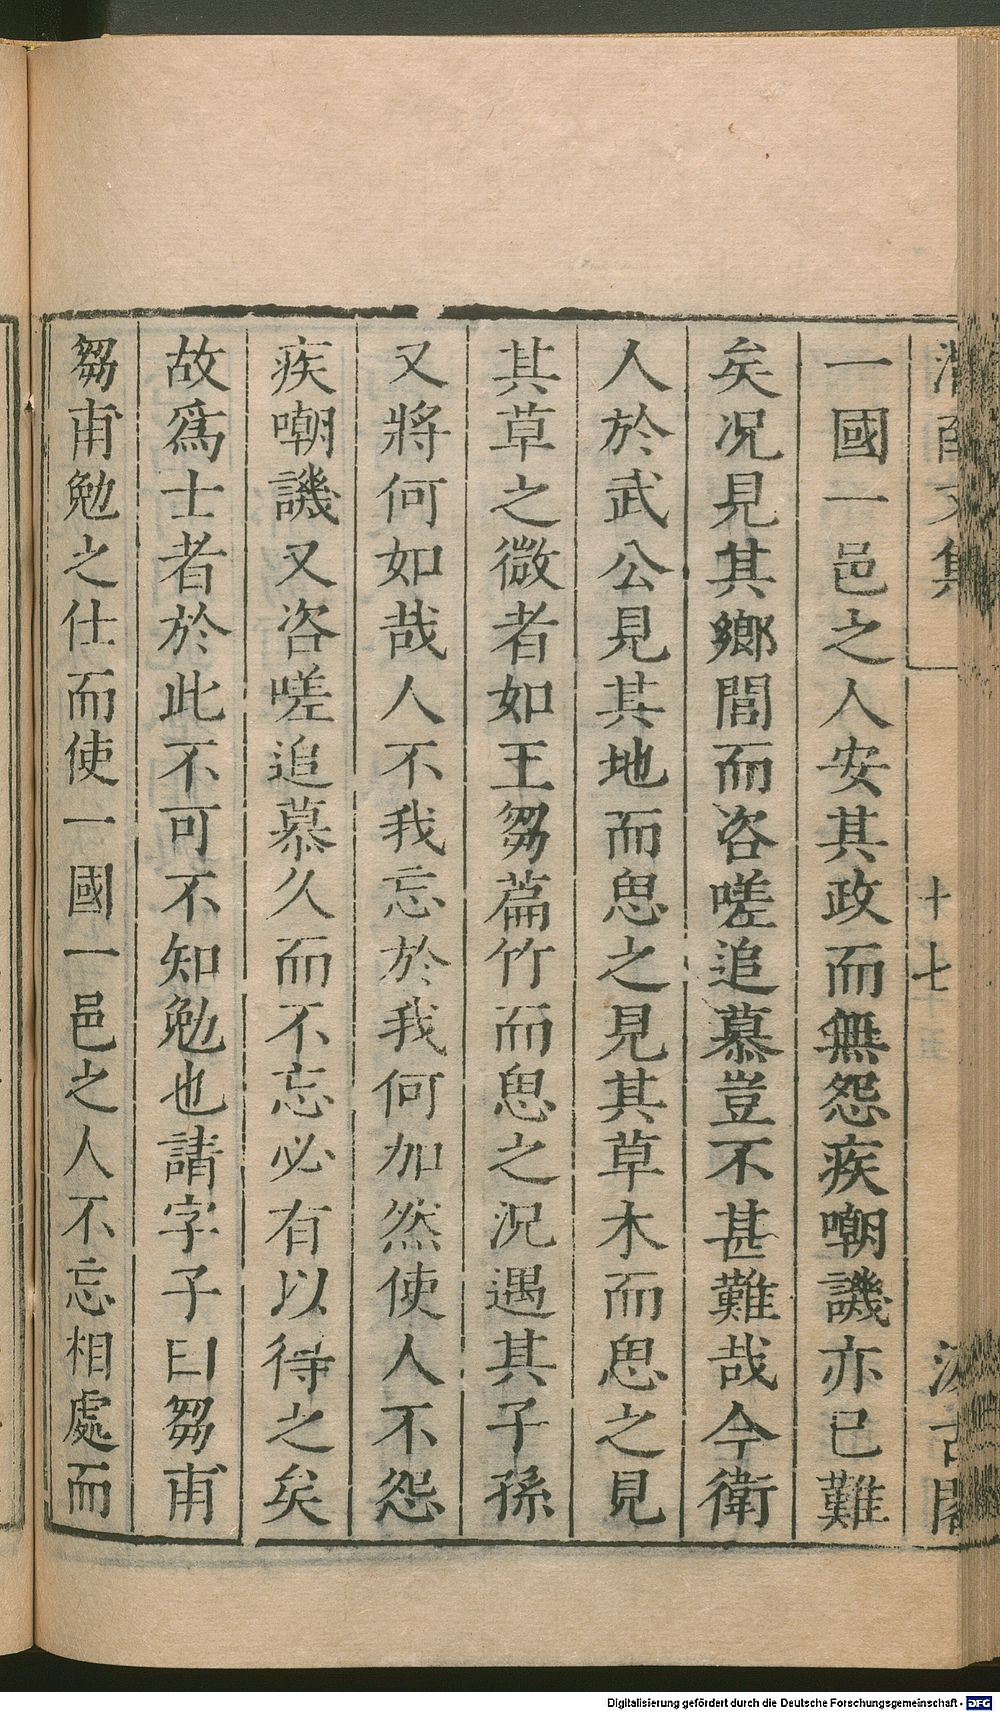 文集
十七
一國一邑之人安其政而無怨疾嘲譏亦已難
矣况見其鄉閭而咨嗟追慕豈不甚難哉今衛
人於武公見其地而思之見其草木而思之見
其草之微者如王芻萹竹而思之況遇其子孫
又將何如哉人不我忘於我何加然使人不怨
疾嘲譏又咨嗟追慕久而不忘必有以得之矣
故爲士者於此不可不知勉也請字子曰芻甫
芻甫勉之仕而使一國一邑之人不忘相處而
Digitalisierung gefördert durch die Deutsche Forschungsgemeinschaft - DFG